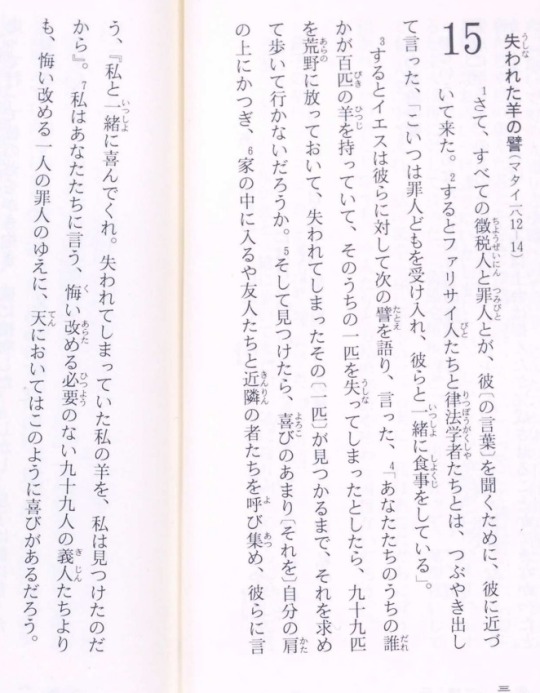 失われた羊の譬（マタイ一八12-14）
15
1さて、すべての徴税人と罪人とが、彼〔の言葉〕を聞くために、彼に近づ
いて来た。2するとファリサイ人たちと律法学者たちとは、つぶやき出し
て言った、「こいつは罪人どもを受け入れ、彼らと一緒に食事をしている」。
3するとイエスは彼らに対して次の譬を語り、言った、4「あなたたちのうちの誰
かが百匹の羊を持っていて、そのうちの一匹を失ってしまったとしたら、九十九匹
を荒野に放っておいて、失われてしまったその〔一匹〕が見つかるまで、それを求め
て歩いて行かないだろうか。5そして見つけたら、喜びのあまり〔それを〕自分の肩
の上にかつぎ、6家の中に入るや友人たちと近隣の者たちを呼び集め、彼らに言
う、『私と一緒に喜んでくれ。失われてしまっていた私の羊を、私は見つけたのだ
から』。7私はあなたたちに言う、悔い改める必要のない九十九人の義人たちより
も、悔い改める一人の罪人のゆえに、天においてはこのように喜びがあるだろう。